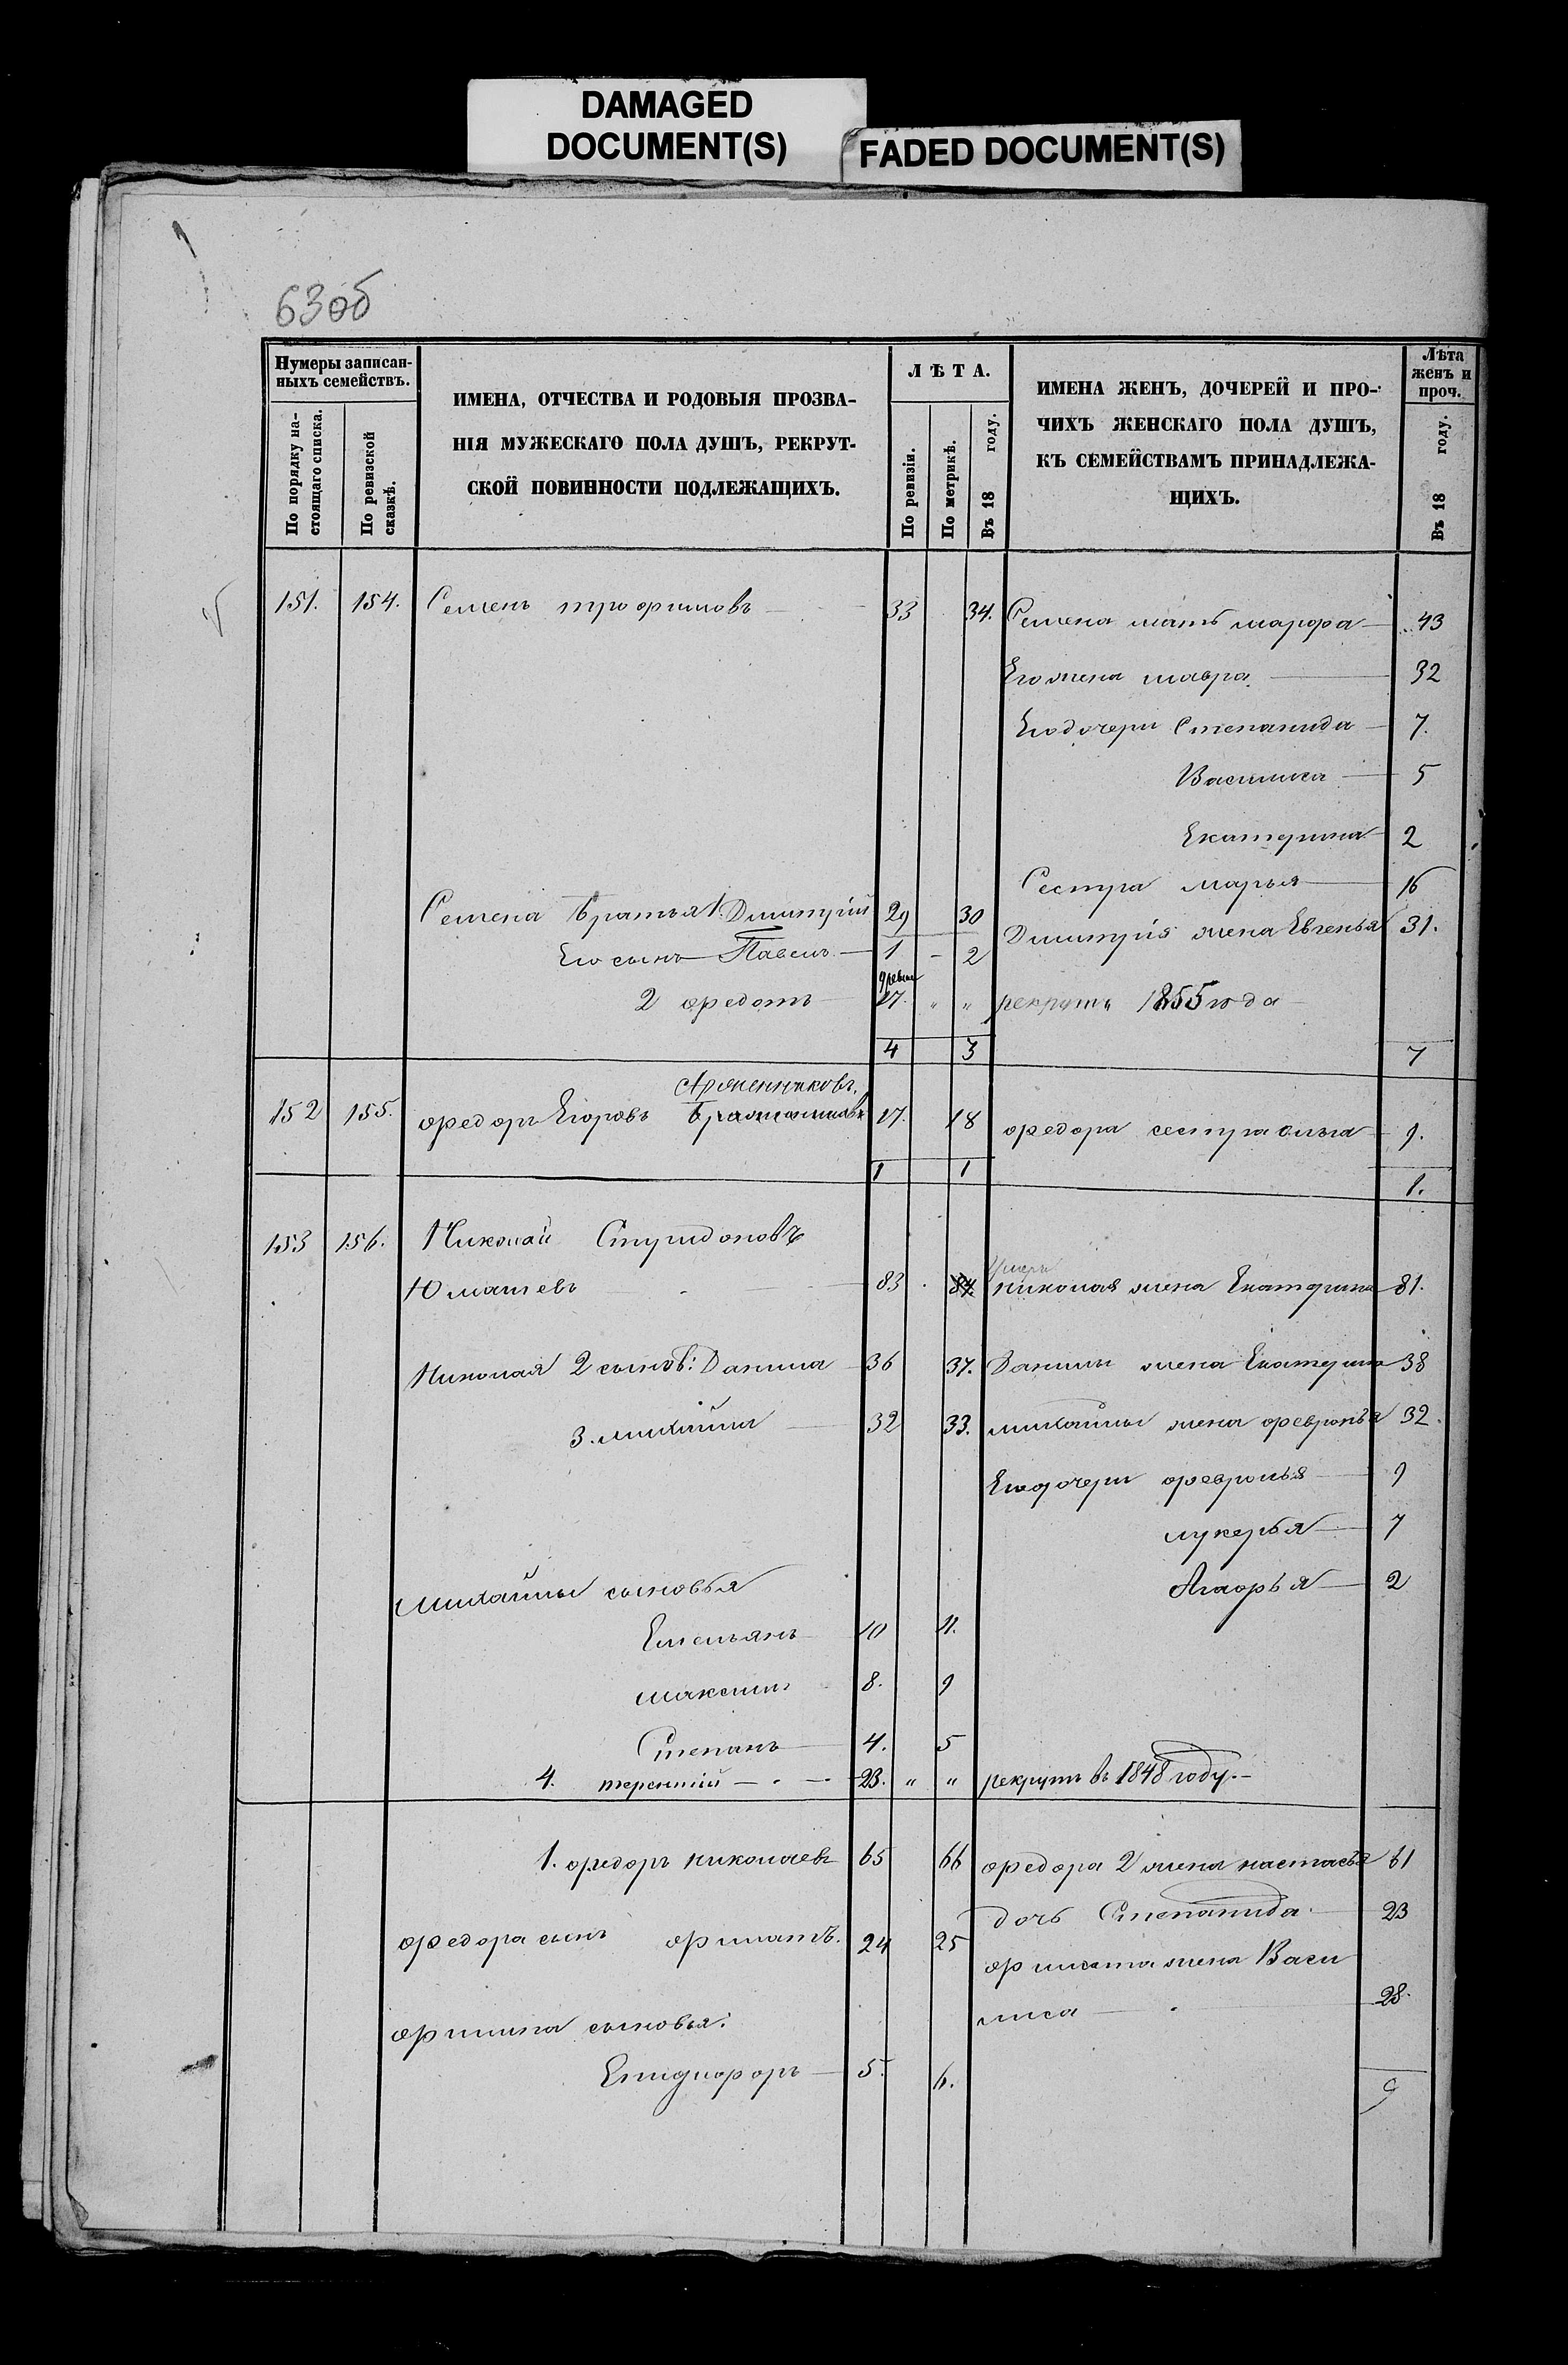 DAMAGED
DOCUMENT(S)
FADED DOCUMENT(S)
63об
Нумеры записан-
ныхъ семействъ.
По порядку на-
стоящаго списка.
По ревизской
сказкѣ.
ИМЕНА, ОТЧЕСТВА И РОДОВЫЯ ПРОЗВА-
НІЯ МУЖЕСКАГО ПОЛА ДУШЪ, РЕКРУТ-
СКОЙ ПОВИННОСТИ ПОДЛЕЖАЩИХЪ.
ЛѢТА.
По ревизіи.
По метрикѣ.
Въ 18 году.
ИМЕНА ЖЕНЪ, ДОЧЕРЕЙ И ПРО-
ЧИХЪ ЖЕНСКАГО ПОЛА ДУШЪ,
КЪ СЕМЕЙСТВАМЪ ПРИНАДЛЕЖА-
ЩИХЪ.
Лѣта
женъ и
проч.
Въ 18 году.
151. 154. Семенъ трофимовъ 33 34. Семена мать марфа 43
Его жена мавра 32
Его дочери Степанида 7.
Василиса 5
Екатерина 2
Сестра марья 16
Семена братья 1. Димитрій 29 30 Димитрія жена Евгенья 31.
Его сынъ Павелъ 1 - 2
2 федотъ 27. " " рекрутъ 1855 года
4 3 7
152 155. федоръ Егоровъ 17. 18 федора сестра ольга 9.
1 1 1.
153 156. Николай Спиридоновъ
Юмашевъ 83 84. умеръ николая жена Екатерина 81.
Николая 2 сынов: Данила 36 37. Данилы жена Екатерина 38
3. михайла 32 33. михайлы жена февронья 32.
Его дочери февронья 9
лукерья 7
Агафья 2
михайлы сыновья
Емельянъ 10 11.
максимъ 8. 9
Степанъ 4. 5
4. терентій 23. " " рекрутъ въ 1848 году.
1. федоръ николаевъ 65 66 федора 2 жена настасья 61
дочь Степанида 23
федора сынъ филатъ. 24 25 филата жена Васи
лиса 28.
филипа сыновья:
Епидифоръ 5. 6.
9